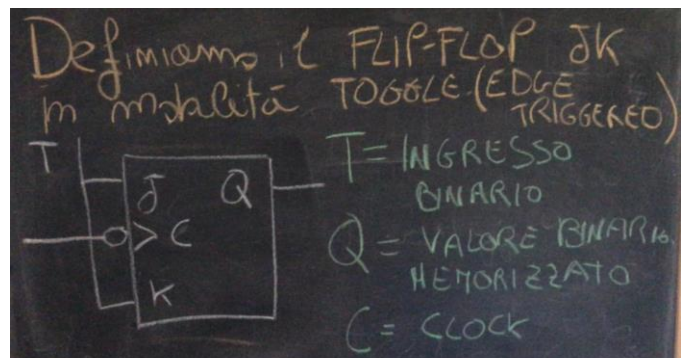 Definiamo il FLIP-FLOP JK
in modalità TOGGLE (EDGE
TRIGGERED)
T
J Q
> C
K
T = INGRESSO
BINARIO
Q = VALORE BINARIO
MEMORIZZATO
C = CLOCK